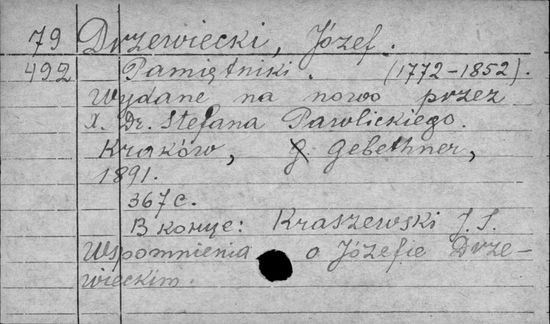 79 Drzewiecki, Józef.
492 Pamiętniki. (1772-1852).
Wydane na nowo przez
X. Dr. Stefana Pawlickiego.
Kraków, G. Gebethner,
1891.
367 c.
В конце: Kraszewski J. I.
Wspomnienia o Józefie Drze-
wieckim.